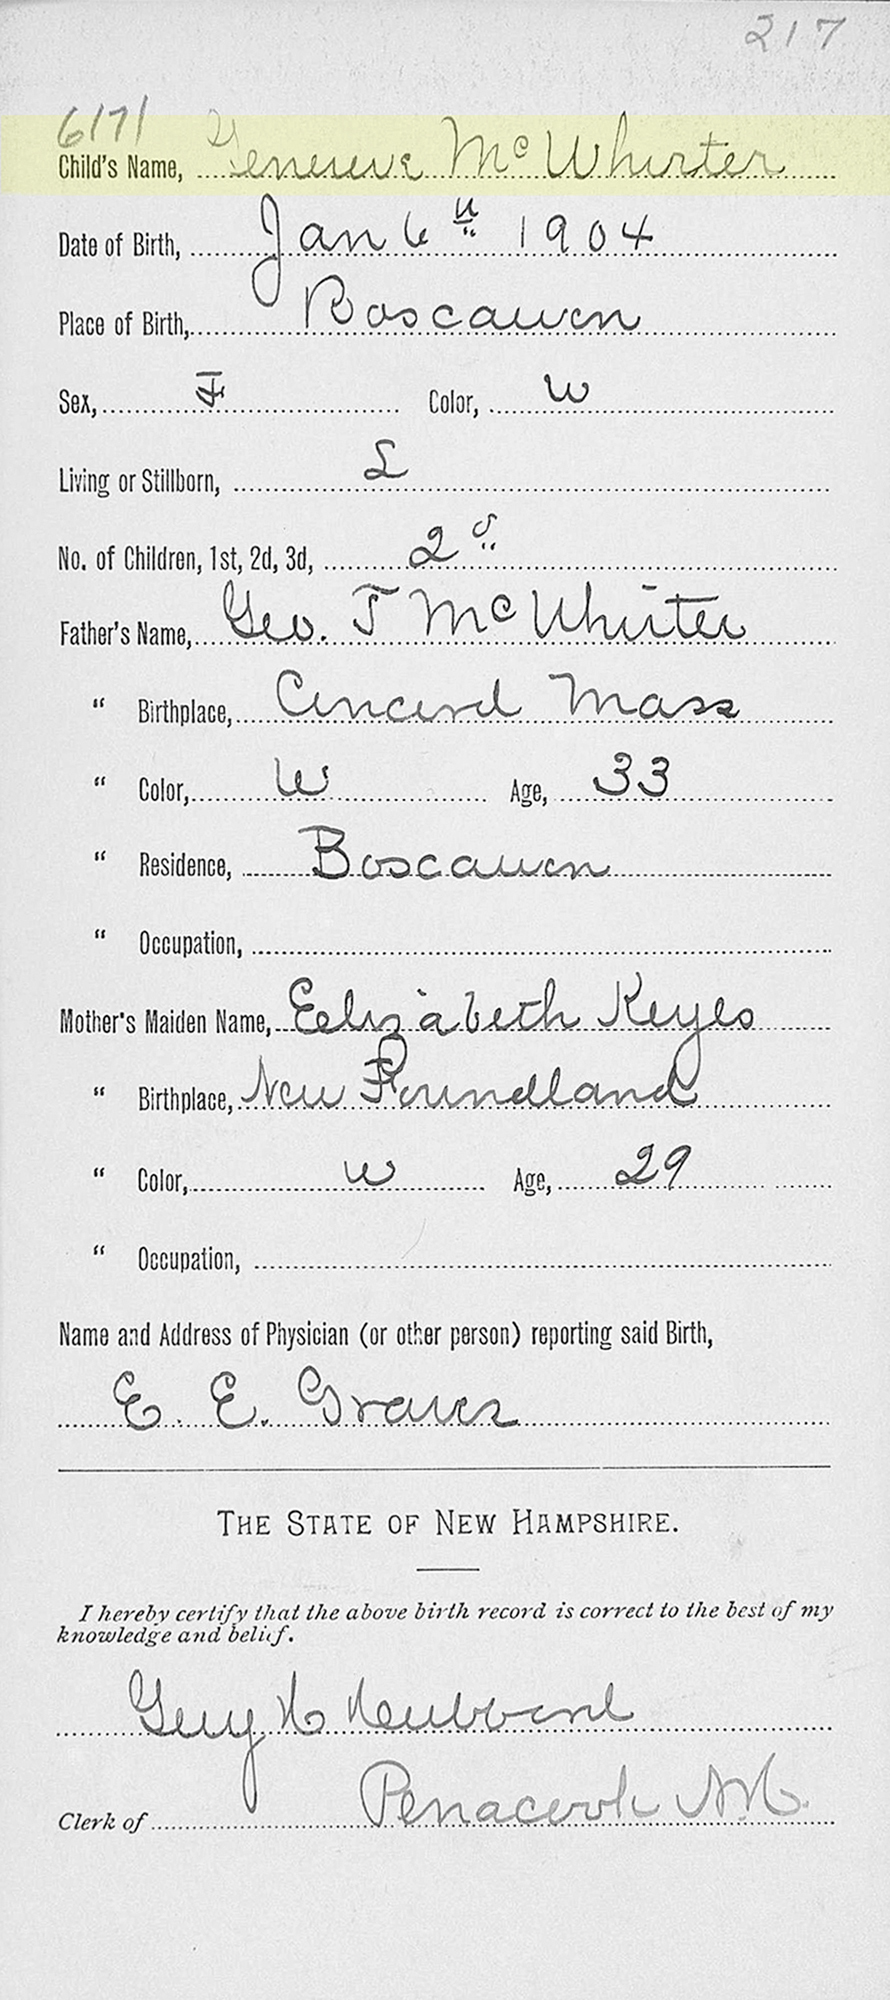 217
6171
Child's Name, Genevieve McWhirter
Date of Birth, Jan 6th 1904
Place of Birth, Boscawen
Sex, F Color, W
Living or Stillborn, L
No. of Children, 1st, 2d, 3d, 2d
Father's Name, Geo. T McWhirter
" Birthplace, Concord Mass
" Color, W Age, 33
" Residence, Boscawen
" Occupation,
Mother's Maiden Name, Eelizabeth Keyes
" Birthplace, New Foundland
" Color, W Age, 29
" Occupation,
Name and Address of Physician (or other person) reporting said Birth,
E. E. Graves
THE STATE OF NEW HAMPSHIRE.
I hereby certify that the above birth record is correct to the best of my
knowledge and belief.
Guy H
Clerk of Penacook NH.